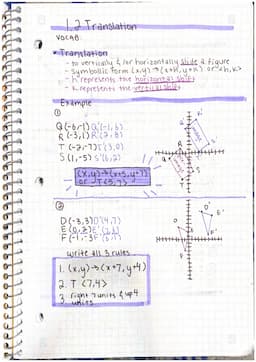 1.2 Translation
VOCAB:
* Translation
- to vertically &/or horizontally slide a figure
- symbolic form (x,y)→(x+h, y+k) or <h,k>
- h represents the horizontal shift
- k represents the vertical shift
Example
①
Q(-6,-1) Q'(-1,6)
R(-3,1) R'(2,8)
T(-2,-7) T'(3,0)
S(1,-5) S'(6,2)
(x,y)→(x+5, y+7)
or T<5,7>
②
D(-3,3) D'(4,7)
E(0,2)
F(-1,-3)
write all 3 rules
1. (x,y)→(x+7, y+4)
2. T <7,4>
3. right 7 units & up 4
units